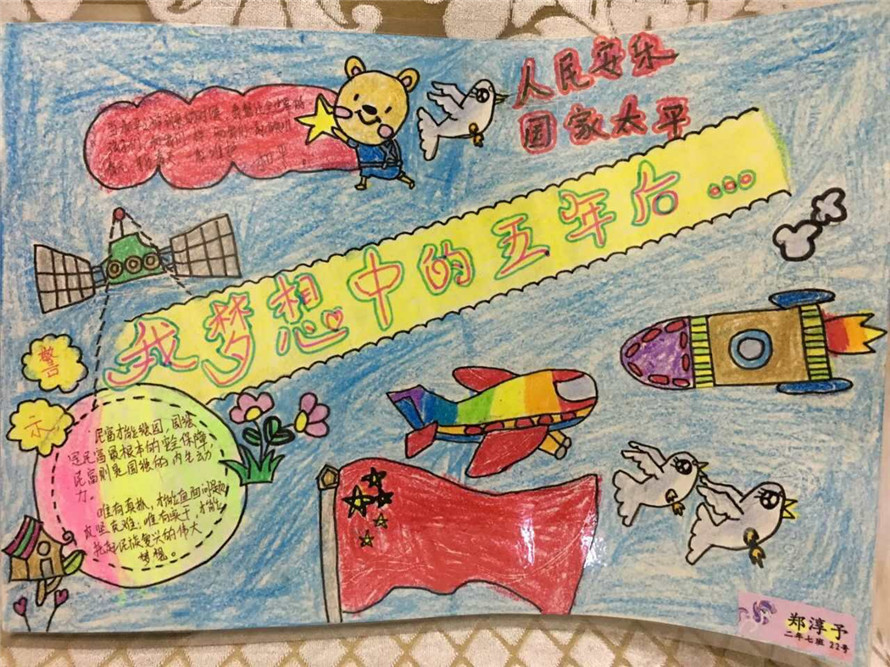 人民安乐
国家太平
我梦想中的五年后...
警
示
民富才能强国,国强
是民富最根本的安全保障
民富则是国强的内生动
力。
唯有真抓,才能直面问题
攻坚克难,唯有实干,才能
托起民族复兴的伟大
梦想。
郑淳予
二年七班 22号